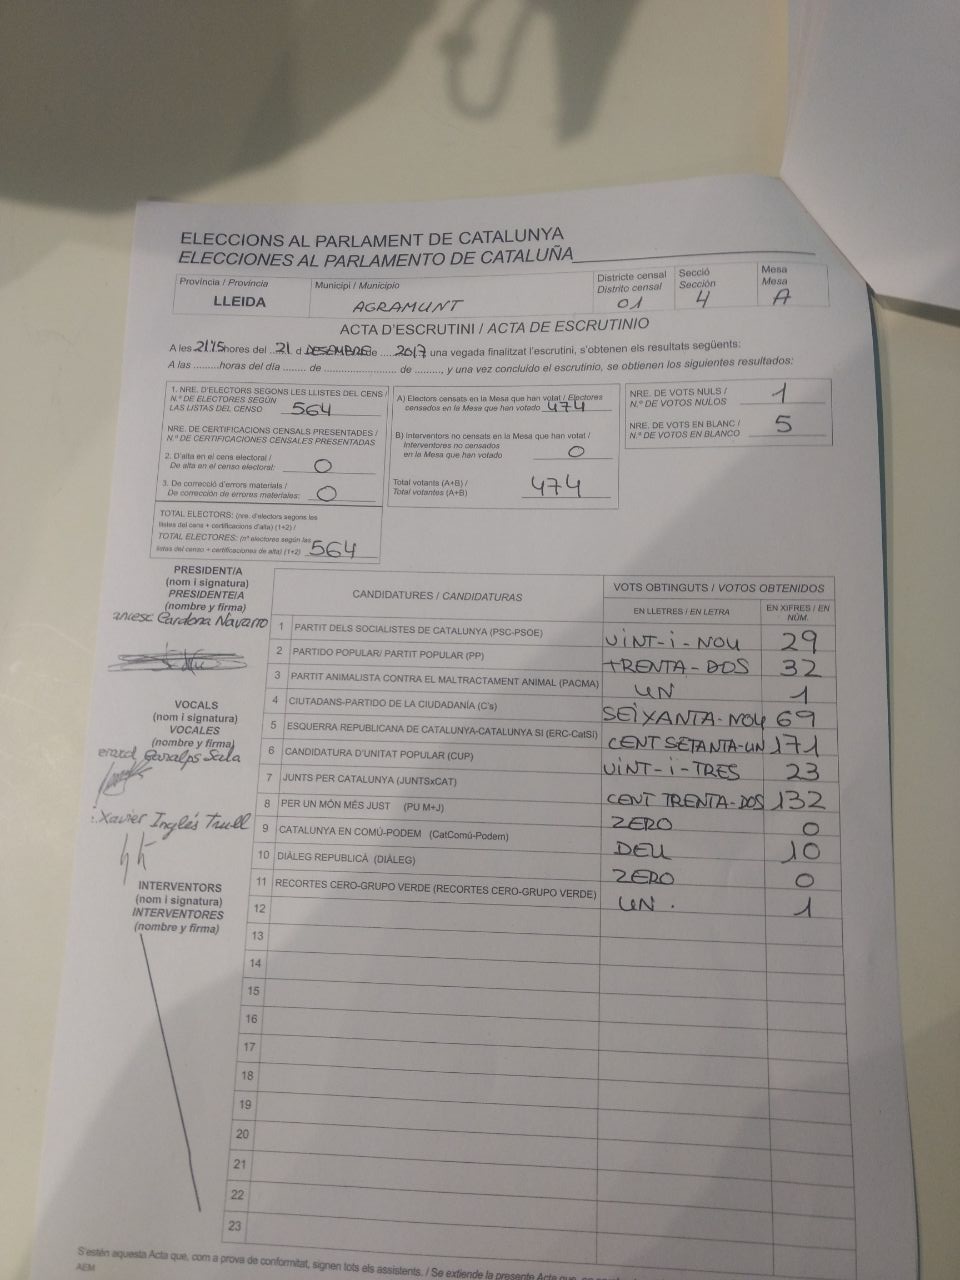 ELECCIONS AL PARLAMENT DE CATALUNYA
ELECCIONES AL PARLAMENTO DE CATALUÑA
Província / Provincia
LLEIDA
Municipi / Municipio
AGRAMUNT
Districte censal
Distrito censal
01
Secció
Sección
4
Mesa
Mesa
A
ACTA D'ESCRUTINI / ACTA DE ESCRUTINIO
A les 21:15 hores del 21 d DESEMBRE de 2017 una vegada finalitzat l'escrutini, s'obtenen els resultats següents:
A las .........horas del día ....... de ........................ de ........., y una vez concluido el escrutinio, se obtienen los siguientes resultados:
1. NRE. D'ELECTORS SEGONS LES LLISTES DEL CENS /
N.º DE ELECTORES SEGÚN
LAS LISTAS DEL CENSO 564
NRE. DE CERTIFICACIONS CENSALS PRESENTADES /
N.º DE CERTIFICACIONES CENSALES PRESENTADAS
2. D'alta en el cens electoral /
De alta en el censo electoral: 0
3. De correcció d'errors materials /
De corrección de errores materiales: 0
TOTAL ELECTORS: (nre. d'electors segons les
llistes del cens + certificacions d'alta) (1+2) /
TOTAL ELECTORES: (nº electores según las
listas del censo + certificaciones de alta) (1+2) 564
A) Electors censats en la Mesa que han votat / Electores
censados en la Mesa que han votado 474
B) Interventors no censats en la Mesa que han votat /
Interventores no censados
en la Mesa que han votado 0
Total votants (A+B) /
Total votantes (A+B) 474
NRE. DE VOTS NULS /
N.º DE VOTOS NULOS 1
NRE. DE VOTS EN BLANC /
N.º DE VOTOS EN BLANCO 5
PRESIDENT/A
(nom i signatura)
PRESIDENTE/A
(nombre y firma)
Cardona Navarro
VOCALS
(nom i signatura)
VOCALES
(nombre y firma)
Xavier Inglés Trull
INTERVENTORS
(nom i signatura)
INTERVENTORES
(nombre y firma)
CANDIDATURES / CANDIDATURAS
VOTS OBTINGUTS / VOTOS OBTENIDOS
EN LLETRES / EN LETRA
EN XIFRES / EN NÚM.
1 PARTIT DELS SOCIALISTES DE CATALUNYA (PSC-PSOE) VINT-i-NOU 29
2 PARTIDO POPULAR/ PARTIT POPULAR (PP) TRENTA-DOS 32
3 PARTIT ANIMALISTA CONTRA EL MALTRACTAMENT ANIMAL (PACMA) UN 1
4 CIUTADANS-PARTIDO DE LA CIUDADANÍA (C's) SEIXANTA-NOU 69
5 ESQUERRA REPUBLICANA DE CATALUNYA-CATALUNYA SÍ (ERC-CatSí) CENT SETANTA-UN 171
6 CANDIDATURA D'UNITAT POPULAR (CUP) VINT-i-TRES 23
7 JUNTS PER CATALUNYA (JUNTSxCAT) CENT TRENTA-DOS 132
8 PER UN MÓN MÉS JUST (PU M+J) ZERO 0
9 CATALUNYA EN COMÚ-PODEM (CatComú-Podem) DEU 10
10 DIÀLEG REPUBLICÀ (DIÀLEG) ZERO 0
11 RECORTES CERO-GRUPO VERDE (RECORTES CERO-GRUPO VERDE) UN. 1
12
13
14
15
16
17
18
19
20
21
22
23
S'estén aquesta Acta que, com a prova de conformitat, signen tots els assistents. / Se extiende la presente Acta que,
AEM